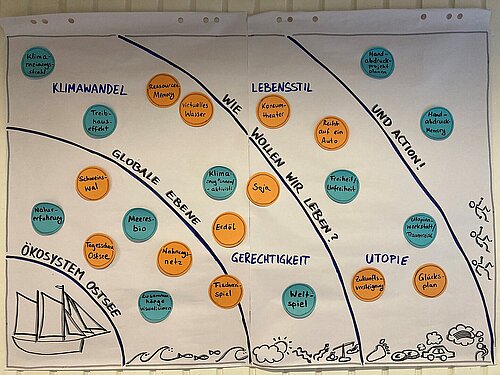 KLIMAWANDEL
LEBENSSTIL
GERECHTIGKEIT
UTOPIE
ÖKOSYSTEM OSTSEE
GLOBALE EBENE
WIE WOLLEN WIR LEBEN?
UND ACTION!
Ressourcen-
Memory
virtuelles
Wasser
Treib-
haus-
effekt
Konsum-
theater
Reicht
auf ein
Auto
Hand-
abdruck-
Memory
Hand-
abdruck-
projekt
Schweins-
wal
Natur-
erfahrung
Meeres-
bio
Tagesschau
Ostsee
Nahrungs-
netz
Klima
Soja
Erdöl
Freiheit/
Unfreiheit
Utopien-
werkstatt/
Fischer-
spiel
Welt-
spiel
Zukunfts-
Glücks-
plan
Zusammen-
hänge